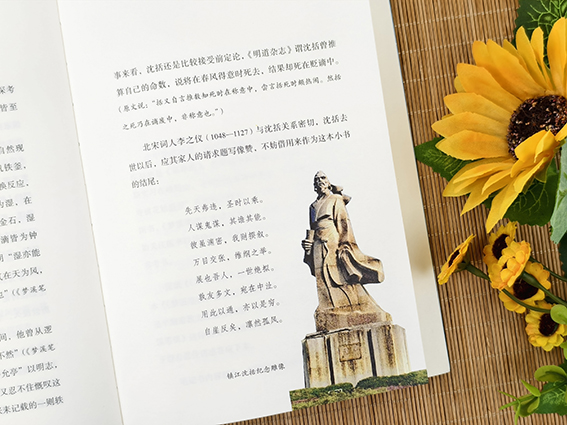 深考
皆至
自然现
铁釜,
换反应,
为湿,在
金石,湿
滴皆为钟
“湿亦能
又在天为风,
也”(《梦溪笔
间,他曾从逻
不然”(《梦溪笔
允亭”以明志,
又忍不住慨叹这
来记载的一则轶
事来看,沈括还是比较接受前定论,《明道杂志》谓沈括曾推
算自己的命数,说将在春风得意时死去,结果却死在贬谪中。
(原文说:“括又自言推数知死时在称意中,尝言括死时颇热闹。然括
之死乃在谪废中,非称意也。”)
北宋词人李之仪(1048—1127)与沈括关系密切,沈括去
世以后,应其家人的请求题写像赞,不妨借用来作为这本小书
的结尾:
先天弗违,圣时以乘。
人谋鬼谋,其谁其能。
彼虽满密,我则揆叙。
万目交张,维纲之举。
展也吾人,一世绝拟。
敦友多文,宛在中沚。
用此以通,亦以是穷。
自崖反矣,凛然孤风。
镇江沈括纪念雕像